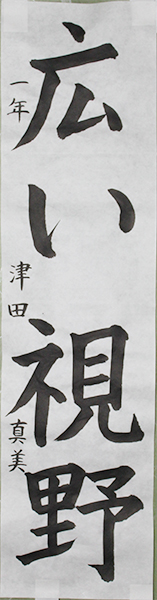 広い視野
一年 津田 真美